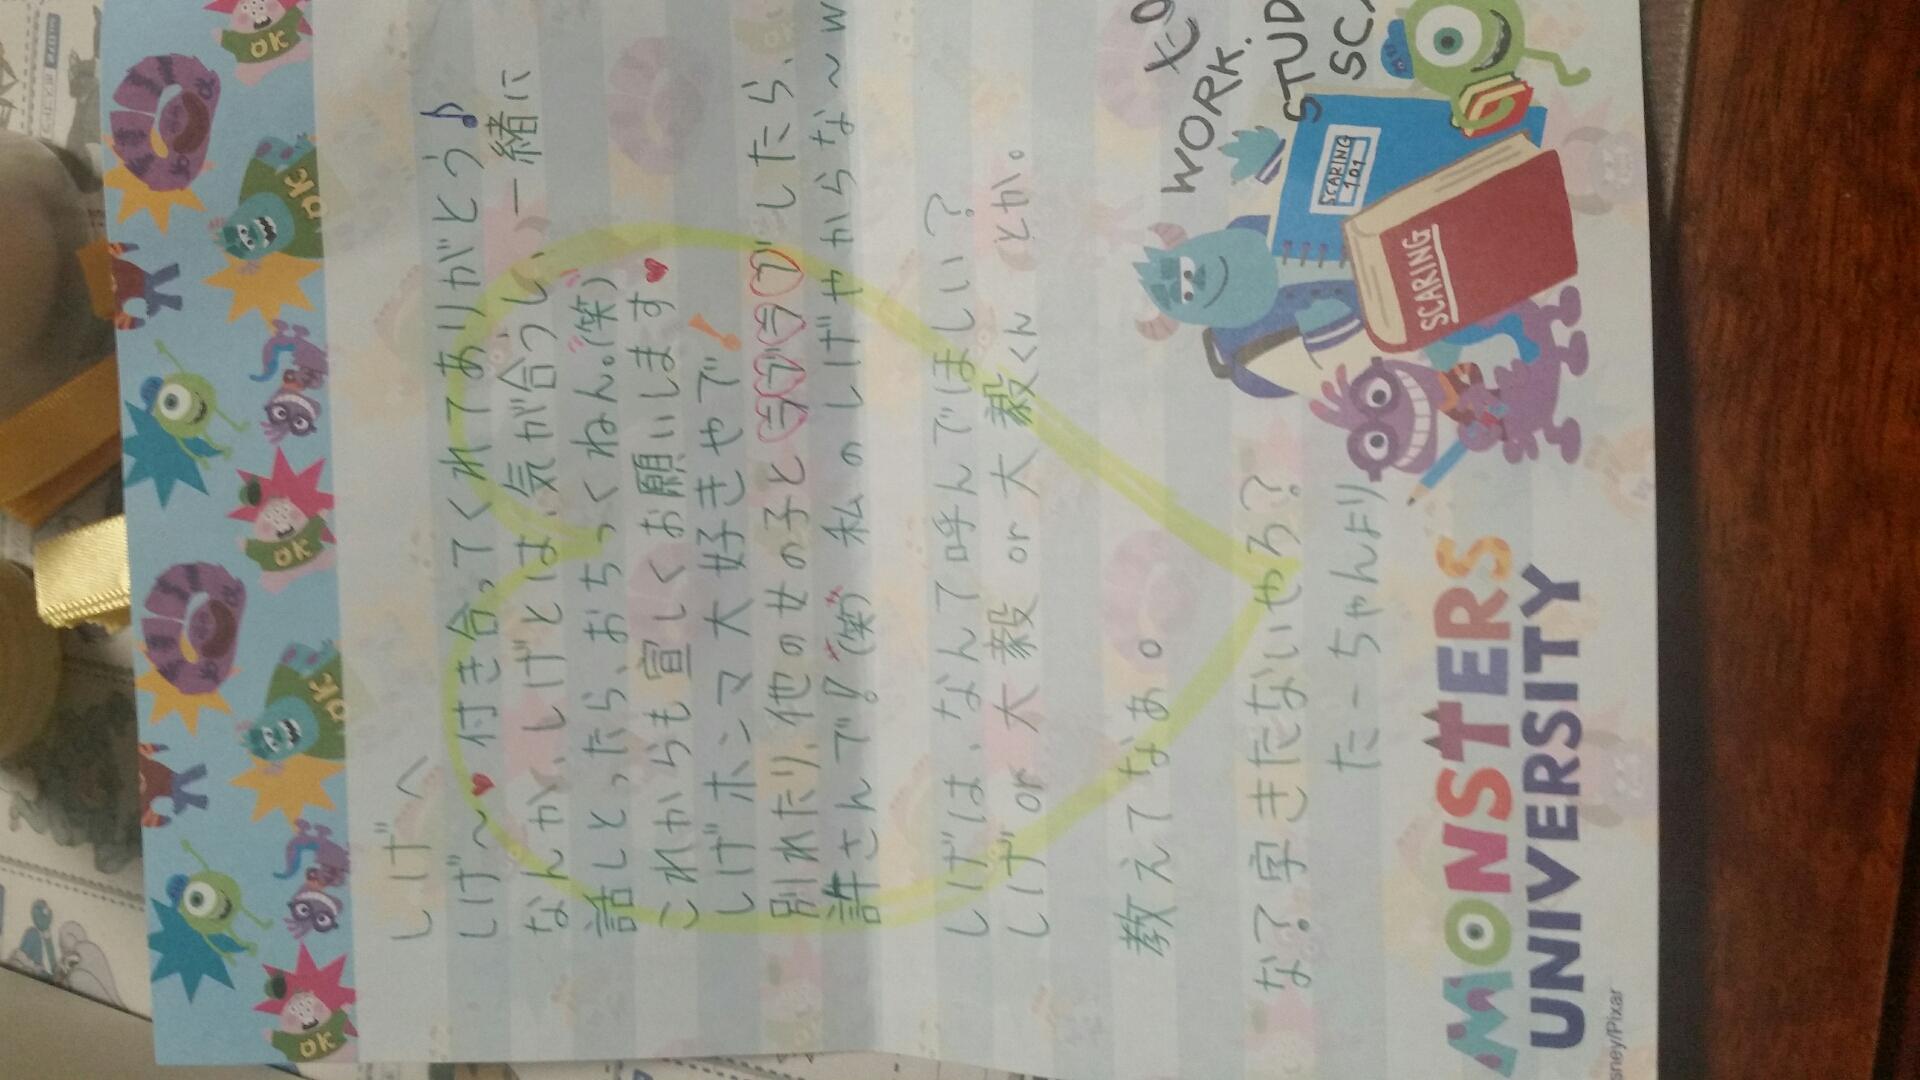 しげへ
しげ～♥付き合ってくれてありがとう♪
なんか、しげとは、気が合うし、一緒に
話しとったら、おちつくねん。(笑)
これからも宜しくお願いします♥
しげホンマ大好きやで！
別れたり、他の女の子とラブラブしたら、
許さんで!!(笑) 私のしげやからな～w
しげは、なんて呼んでほしい？
しげ or 大毅 or 大毅くん とか。
教えてなぁ。
な？字きたないやろ？
たーちゃんより
WORK.
STUD
SCA
SCARING
101
SCARING
MONSTERS
UNIVERSITY
sney/Pixar
OK
OK
OK
OK
OK
OK